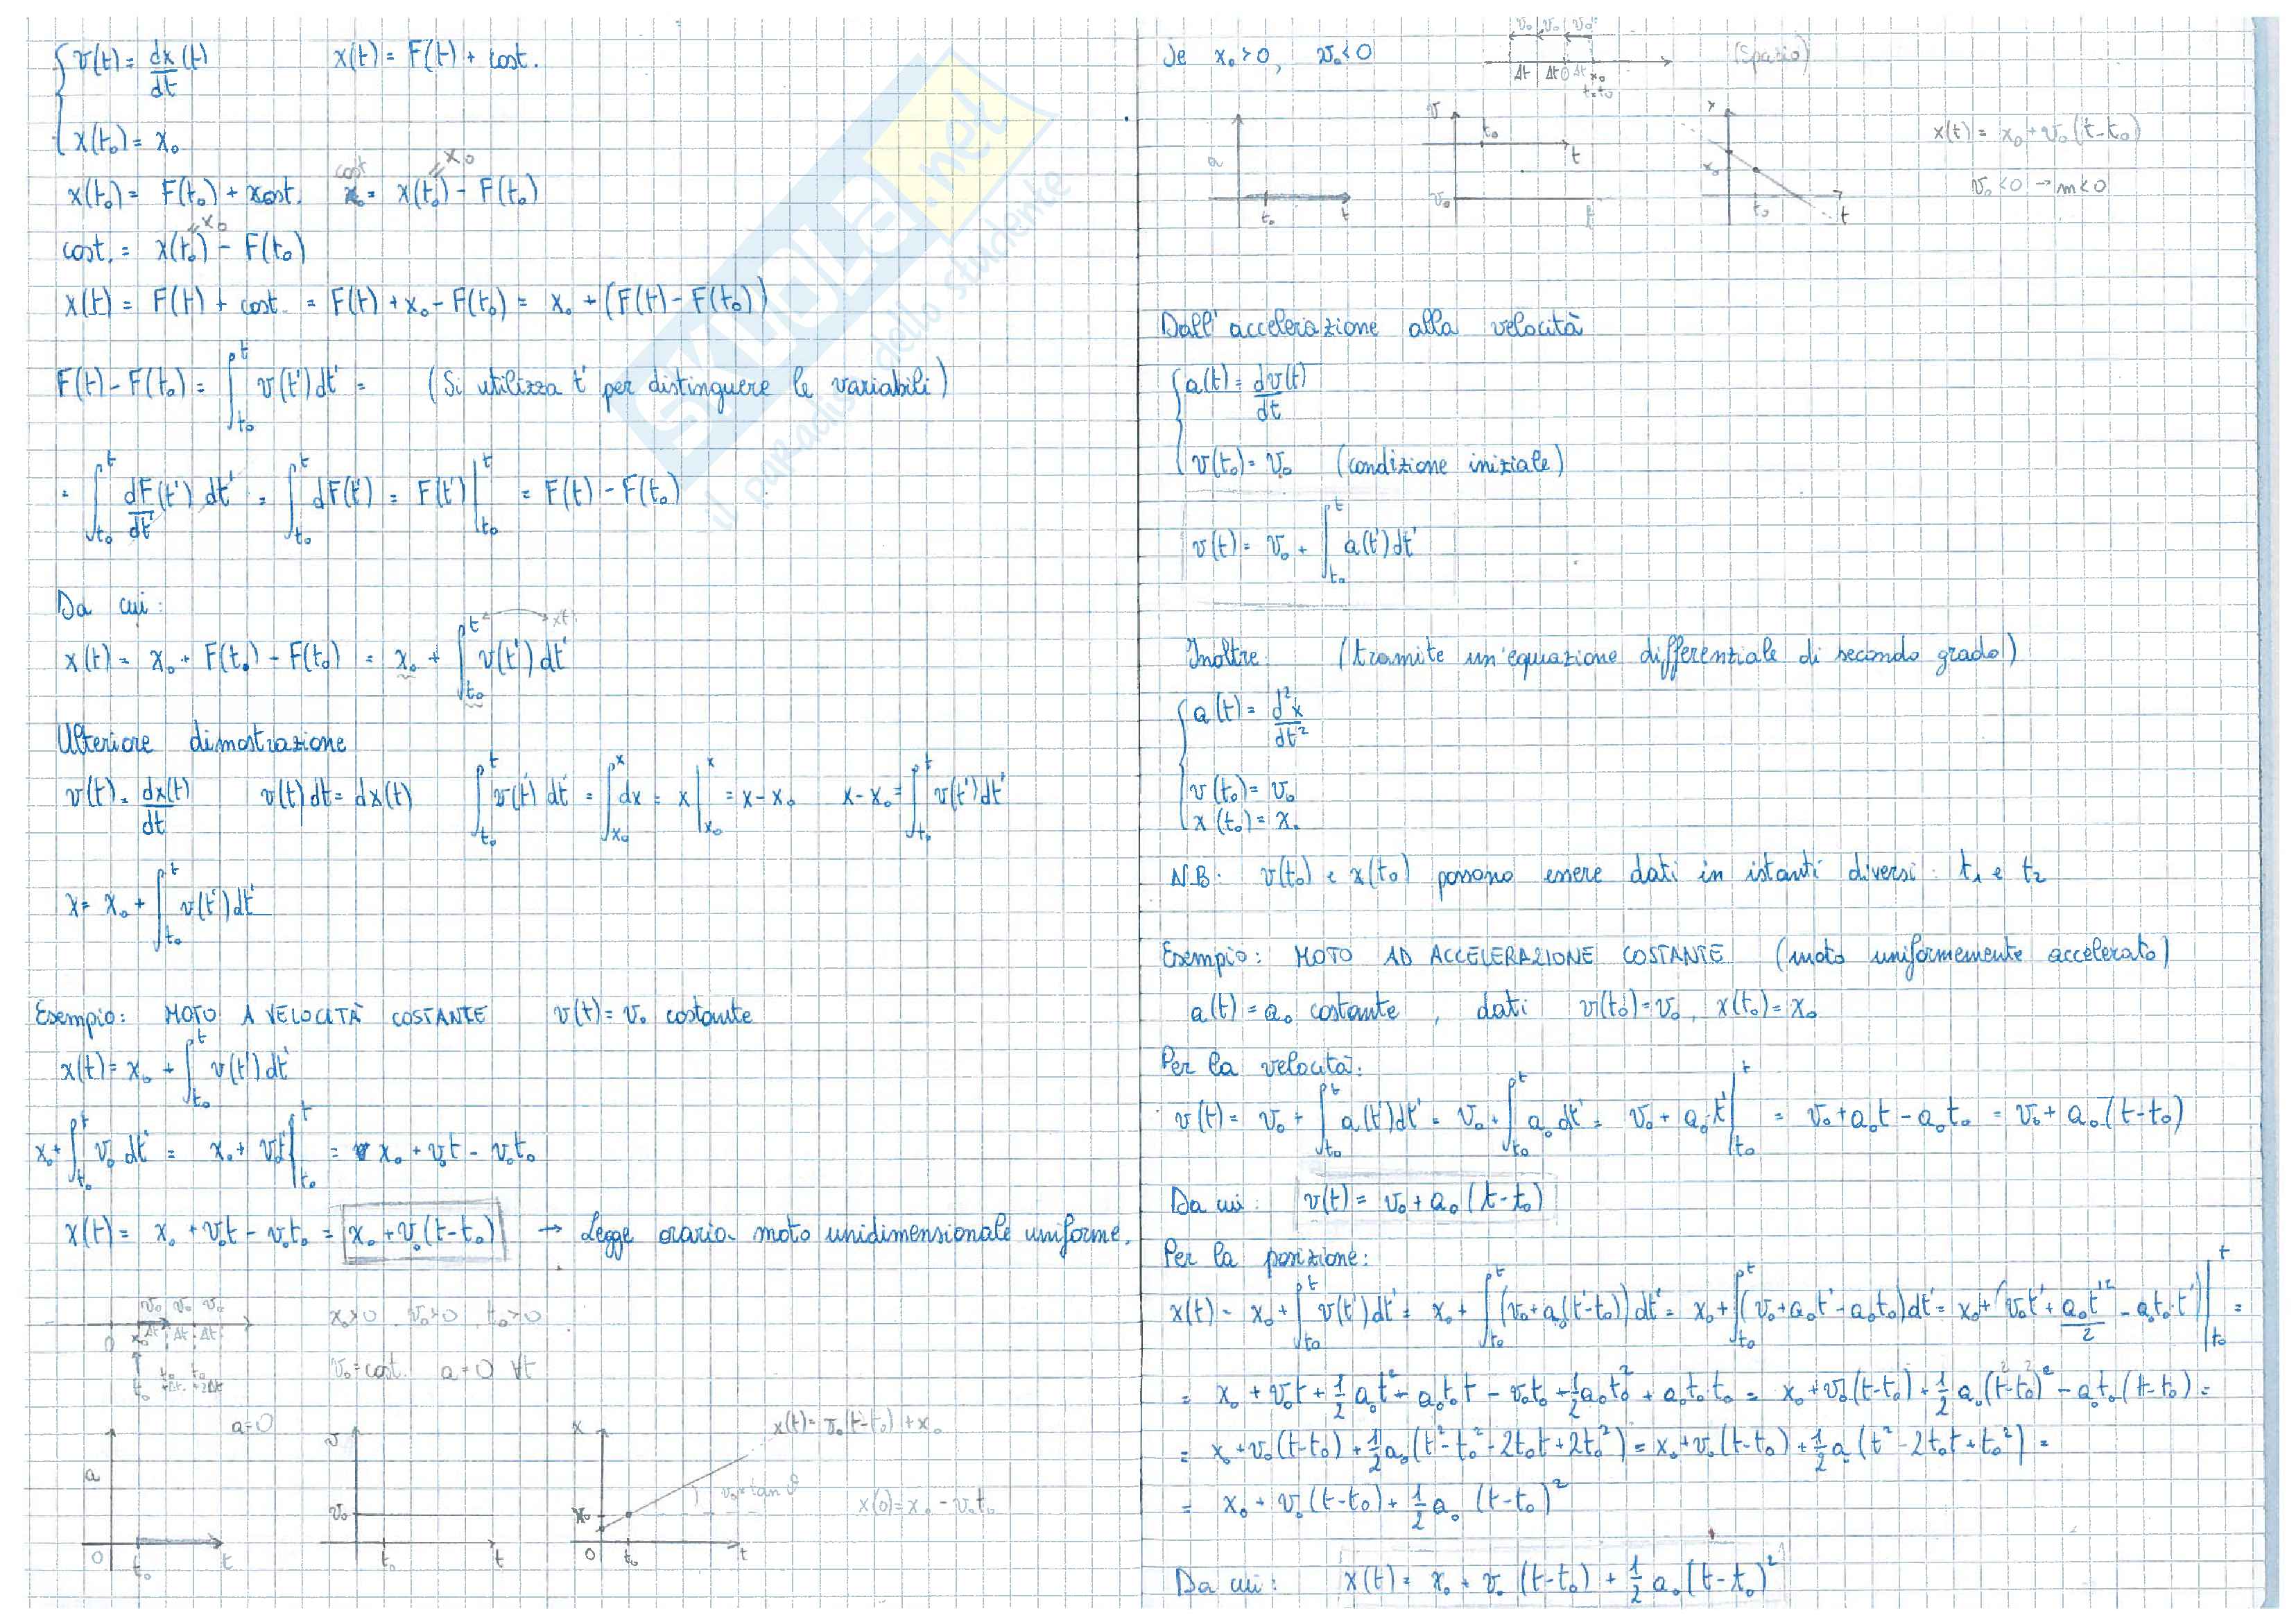 v(t) = dx(t)/dt x(t) = F(t) + cost.
x(t₀) = x₀
x(t₀) = F(t₀) + cost. cost = x(t₀) - F(t₀)
= x₀
cost. = x(t₀) - F(t₀)
= x₀
x(t) = F(t) + cost. = F(t) + x₀ - F(t₀) = x₀ + (F(t) - F(t₀))
F(t) - F(t₀) = ∫_{t₀}^{t} v(t')dt' = (Si utilizza t' per distinguere le variabili)
= ∫_{t₀}^{t} dF(t')/dt' dt' = ∫_{t₀}^{t} dF(t') = F(t')|_{t₀}^{t} = F(t) - F(t₀)
Da cui:
x(t) = x₀ + F(t₀) - F(t₀) = x₀ + ∫_{t₀}^{t} v(t')dt'
Ulteriore dimostrazione
v(t) = dx(t)/dt v(t)dt = dx(t) ∫_{t₀}^{t} v(t')dt' = ∫_{x₀}^{x} dx = x|_{x₀}^{x} = x - x₀ x - x₀ = ∫_{t₀}^{t} v(t')dt'
x = x₀ + ∫_{t₀}^{t} v(t')dt'
Esempio: MOTO A VELOCITÀ COSTANTE v(t) = v₀ costante
x(t) = x₀ + ∫_{t₀}^{t} v(t')dt'
x₀ + ∫_{t₀}^{t} v₀ dt' = x₀ + v₀t'|_{t₀}^{t} = x₀ + v₀t - v₀t₀
x(t) = x₀ + v₀t - v₀t₀ = x₀ + v₀(t-t₀) → Legge oraria moto unidimensionale uniforme.
v₀ v₀ v₀ x₀>0, v₀>0, t₀>0
0 x₀ Δt Δt Δt
t₀ t₀+Δt t₀+2Δt v₀ = cost. a = 0 ∀t
a=0 x(t) = v₀(t-t₀) + x₀
a v x
v₀ x₀ v₀ = tan ϑ x(0) = x₀ - v₀t₀
0 t₀ t t₀ t 0 t₀ t
Se x₀>0, v₀<0 v₀ v₀ v₀ (Spazio)
Δt Δt 0 Δt x₀
t=t₀
a t₀ t v t₀ t v₀ x x₀ t₀ t x(t) = x₀ + v₀(t-t₀)
v₀<0 → m<0
Dall'accelerazione alla velocità
a(t) = dv(t)/dt
v(t₀) = v₀ (condizione iniziale)
v(t) = v₀ + ∫_{t₀}^{t} a(t')dt'
Inoltre (tramite un'equazione differenziale di secondo grado)
a(t) = d²x/dt²
v(t₀) = v₀
x(t₀) = x₀
N.B: v(t₀) e x(t₀) possono essere dati in istanti diversi: t₁ e t₂
Esempio: MOTO AD ACCELERAZIONE COSTANTE (moto uniformemente accelerato)
a(t) = a₀ costante, dati v(t₀)=v₀, x(t₀)=x₀
Per la velocità:
v(t) = v₀ + ∫_{t₀}^{t} a(t')dt' = v₀ + ∫_{t₀}^{t} a₀dt' = v₀ + a₀·t'|_{t₀}^{t} = v₀ + a₀t - a₀t₀ = v₀ + a₀(t-t₀)
Da cui: v(t) = v₀ + a₀(t-t₀)
Per la posizione:
x(t) = x₀ + ∫_{t₀}^{t} v(t')dt' = x₀ + ∫_{t₀}^{t} (v₀+a₀(t'-t₀))dt' = x₀ + ∫_{t₀}^{t} (v₀+a₀t'-a₀t₀)dt' = x₀ + (v₀t' + a₀t'²/2 - a₀t₀·t')|_{t₀}^{t} =
= x₀ + v₀t + ½a₀t² - a₀t₀t - v₀t₀ + ½a₀t₀² + a₀t₀t₀ = x₀ + v₀(t-t₀) + ½a₀(t²-t₀²) - a₀t₀(t-t₀) =
= x₀ + v₀(t-t₀) + ½a₀(t²-t₀²-2t₀t+2t₀²) = x₀ + v₀(t-t₀) + ½a₀(t²-2t₀t+t₀²) =
= x₀ + v₀(t-t₀) + ½a₀(t-t₀)²
Da cui: x(t) = x₀ + v₀(t-t₀) + ½a₀(t-t₀)²
SKUOLA.net
il paradiso dello studente